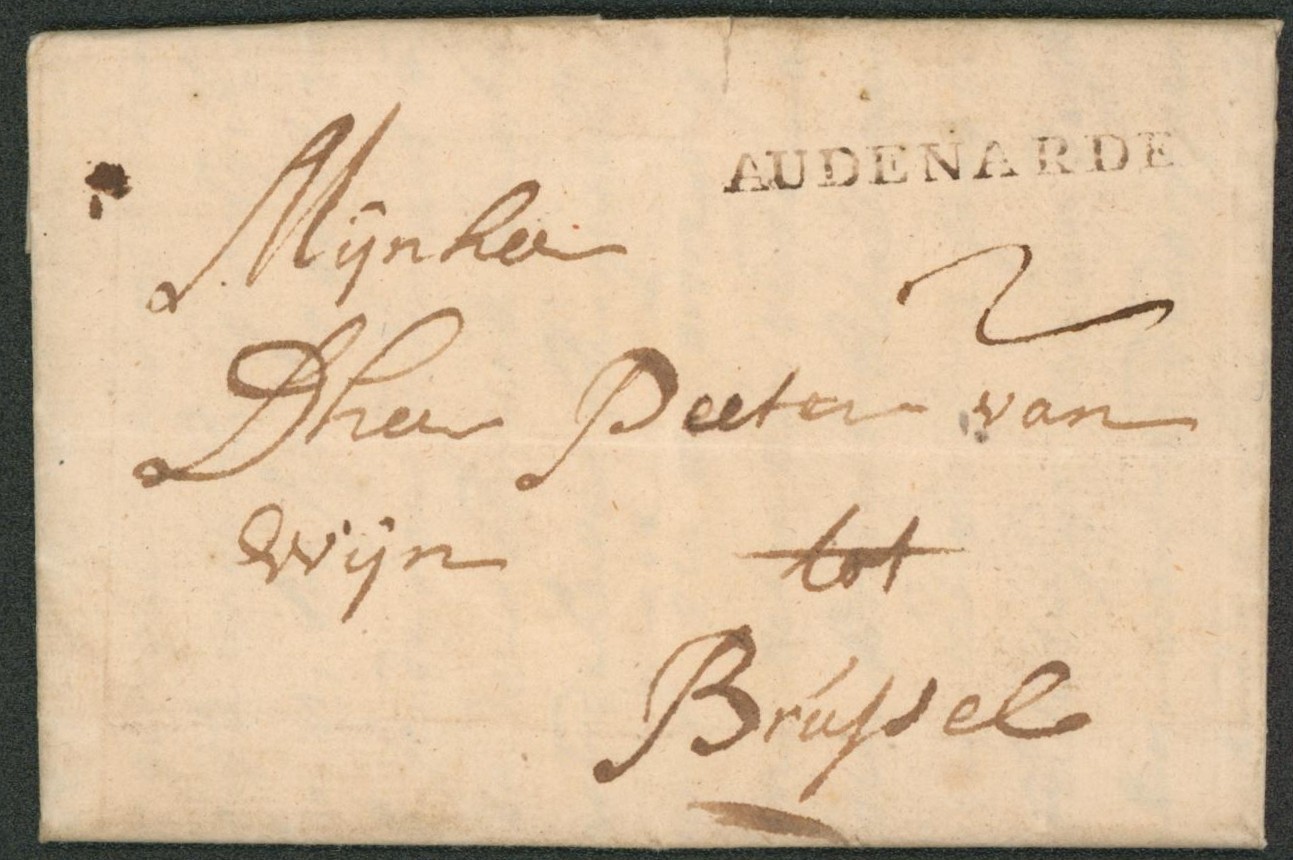 AUDENARDE
Mijnheer
2
Dheer Peeter van
wijn tot
Brussel